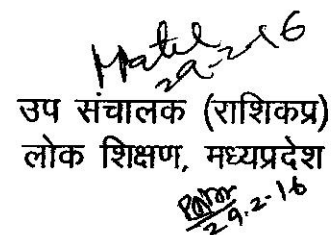 29-2-16
उप संचालक (राशिकप्र)
लोक शिक्षण, मध्यप्रदेश
29.2-16